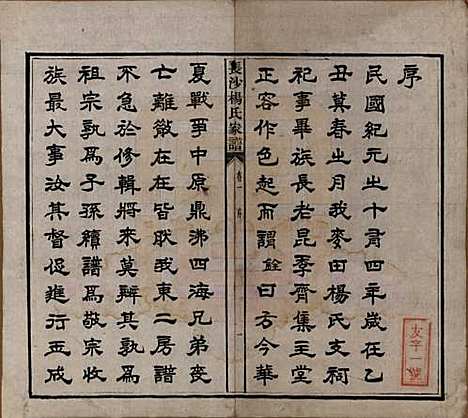 序
民國紀元之十有四年歲在乙
丑蓂春之月我麥田楊氏支祠
祀事畢族長老昆季齊集堂
正容作色起而謂銓曰方今華
長沙楊氏家譜
卷一
序
一
夏戰爭中原鼎沸四海兄弟喪
亡離散在在皆然我東二房譜
不急於修輯將來莫辨其孰為
祖宗孰為子孫續譜為敬宗收
族最大事汝其督促進行五成
友字一號